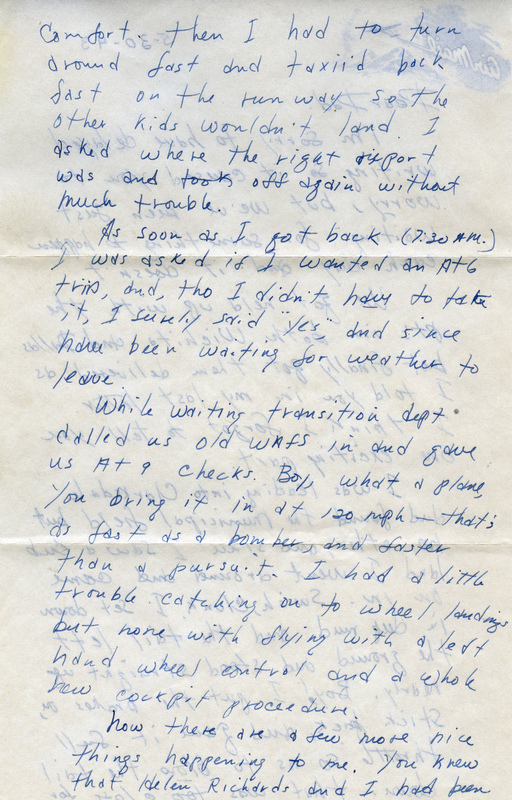 Comfort. Then I had to turn
around fast and taxiid back
fast on the runway, so the
other kids wouldn't land. I
asked where the right airport
was and took off again without
much trouble.
As soon as I got back (7:30 A.M.)
I was asked if I wanted an AT6
trip, and, tho I didn't have to take
it, I surely said "yes" and since
have been waiting for weather to
leave.
While waiting transition dept
called us old WAFS in and gave
us AT 9 checks. Boy, what a plane,
you bring it in at 120 mph — that's
as fast as a bomber, and faster
than a pursuit. I had a little
trouble catching on to wheel landings
but none with flying with a left
hand wheel control and a whole
new cockpit proceedure.
Now there are a few more nice
things happening to me. You knew
that Helen Richards and I had been